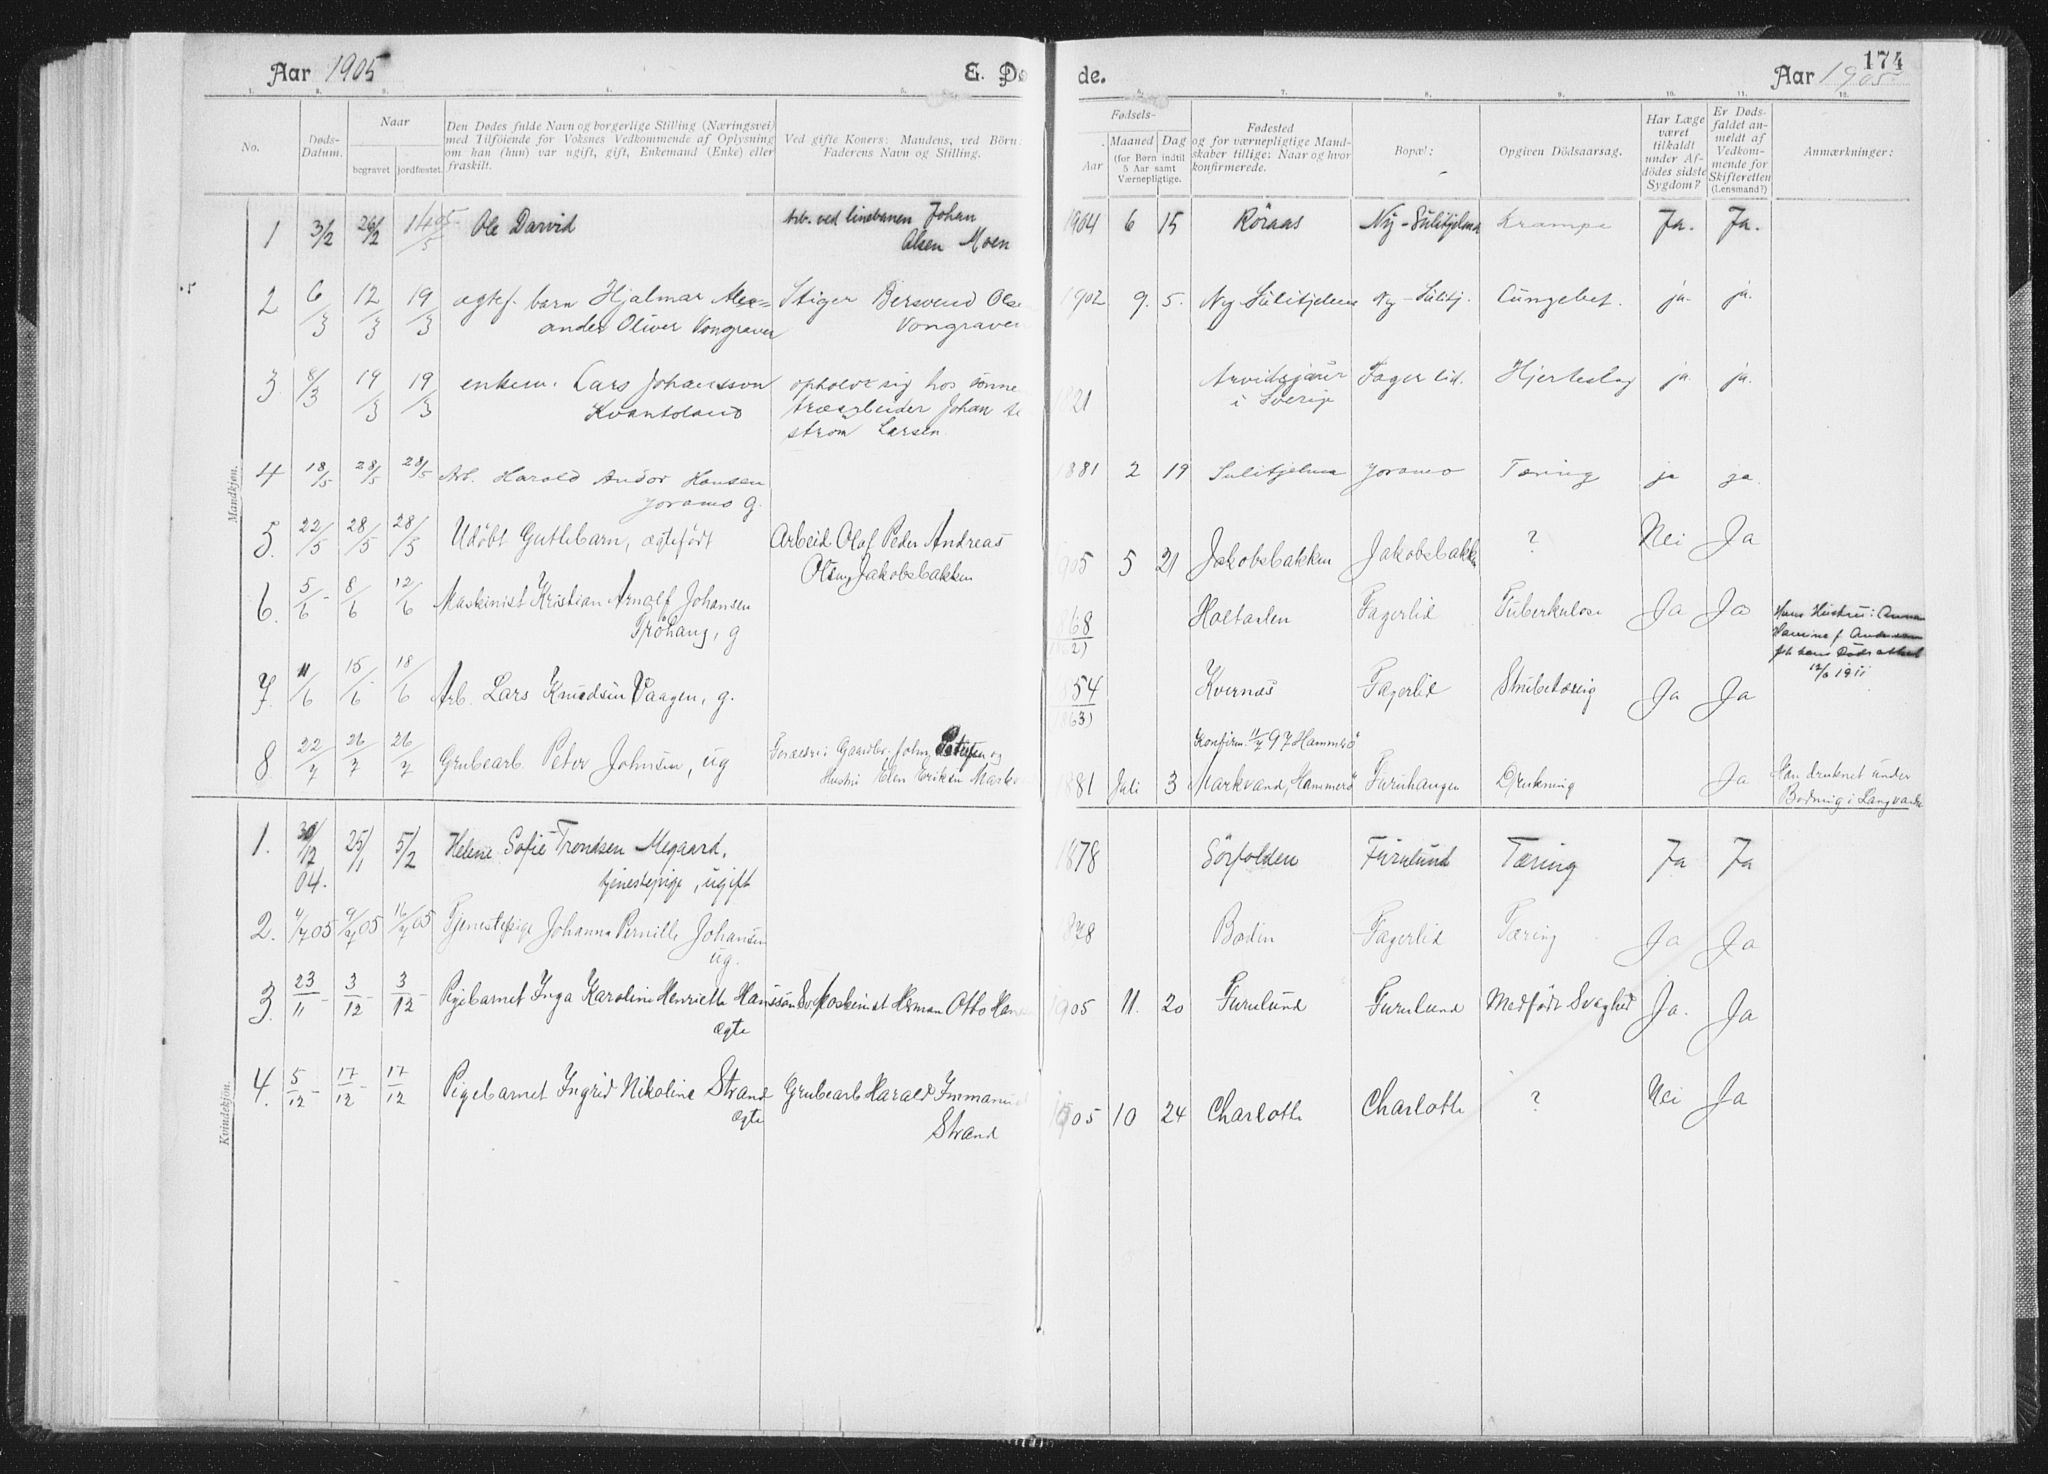 Aar 1905
E. Dö
de.
174
Aar 1905
1. 2. 3. 4. 5. 6. 7. 8. 9. 10. 11. 12.
No.
Döds-
Datum.
Naar
begravet
jordfæstet.
Den Dödes fulde Navn og borgerlige Stilling (Næringsvei)
med Tilföiende for Voksnes Vedkommende af Oplysning
om han (hun) var ugift, gift, Enkemand (Enke) eller
fraskilt.
Ved gifte Koner: Mandens, ved Börn:
Faderens Navn og Stilling.
Födsels-
Aar
Maaned
Dag
(for Børn indtil
5 Aar samt
Værnepligtige.)
Fødested
og for værnepligtige Mand-
skaber tillige: Naar og hvor
konfirmerede.
Bopæl:
Opgiven Dödsaarsag.
Har Læge
været
tilkaldt
under Af-
dödes sidste
Sygdom?
Er Døds-
faldet an-
meldt af
Vedkom-
mende for
Skifteretten
(Lensmand?)
Anmærkninger:
Mandkjøn.
1 3/2 26/2 14/5 05 Ole Darvid Arb. ved linebanen Johan
Olsen Moen
1904 6 15 Röraas Ny-Sulitjelma Krampe Ja. Ja.
2 6/3 12/3 19/3 ægtef. barn Hjalmar Alex- Stiger Bersvend Olse
ander Oliver Vongraven Vongraven
1902 9. 5. Ny-Sulitjelma Ny-Sulitj. Lungebet. ja. ja.
3 8/3 19/3 19/3 enkem. Lars Johansson opholdt sig hos sönne
Kvantoland træarbeider Johan
ström Larsen.
1821 Arvidsjaur Fagerlid. Hjerteslag ja. ja.
i Sverige
4 18/5 28/5 28/5 Arb. Harald Andor Hansen
Joramo g.
1881 2 19 Sulitjelma Joramo Tæring ja ja.
5. 22/5 28/5 28/5 Udöbt Guttebarn, ægtefödt Arbeid. Olaf Peder Andreas
Olsen, Jakobsbakken
905 5 21 Jakobsbakken Jakobsbakk ? Nei Ja
6. 5/6 8/6 12/6 Maskinist Kristian Arnolf Johansen
Tröhaug, g
868 Holtaalen Fagerlid Tuberkulose Ja Ja Hans Hustru: Anna
12/6 1911
7. 11/6 15/6 18/6 Arb. Lars Knudsen Vaagen, g.
54
1863) Kvernæs Fagerlid Strubetæring Ja Ja
8. 22/7 26/7 26/7 Grubearb. Peter Johnsen, ug Forældre: Gaardbr. John Petersen og
Hustru Elen Eriksen Markv
Konfirm. 11/7 97 Hammerö
1881 Juli 3 Markvand, Hammerö Furuhaugen Drukning Ja Han druknet under
Badning i Langvande
Kvindekjøn.
1. 30/12 04. 25/1 5/2 Helene Sofie Trondsen Megaard,
tjenestepige, ugift
1878 Sörfolden Furulund Tæring Ja Ja
2. 4/7 05 9/7 05 16/7 05 Tjenestepige Johanna Pernille Johansen
ug.
Bodin Fagerlid Tæring Ja Ja
3. 23/11 3/12 3/12 Pigebarnet Inga Karoline Henriette Hansson Sv. Maskinist Herman Otto Han
ægte
1905 11. 20 Furulund Furulund Medfödt Svaghed Ja. Ja
4. 5/12 17/12 17/12 Pigebarnet Ingrid Nikoline Strand Grubearb Harald Immanuel
ægte Strand
1905 10 24 Charlotta Charlotta ? Nei Ja